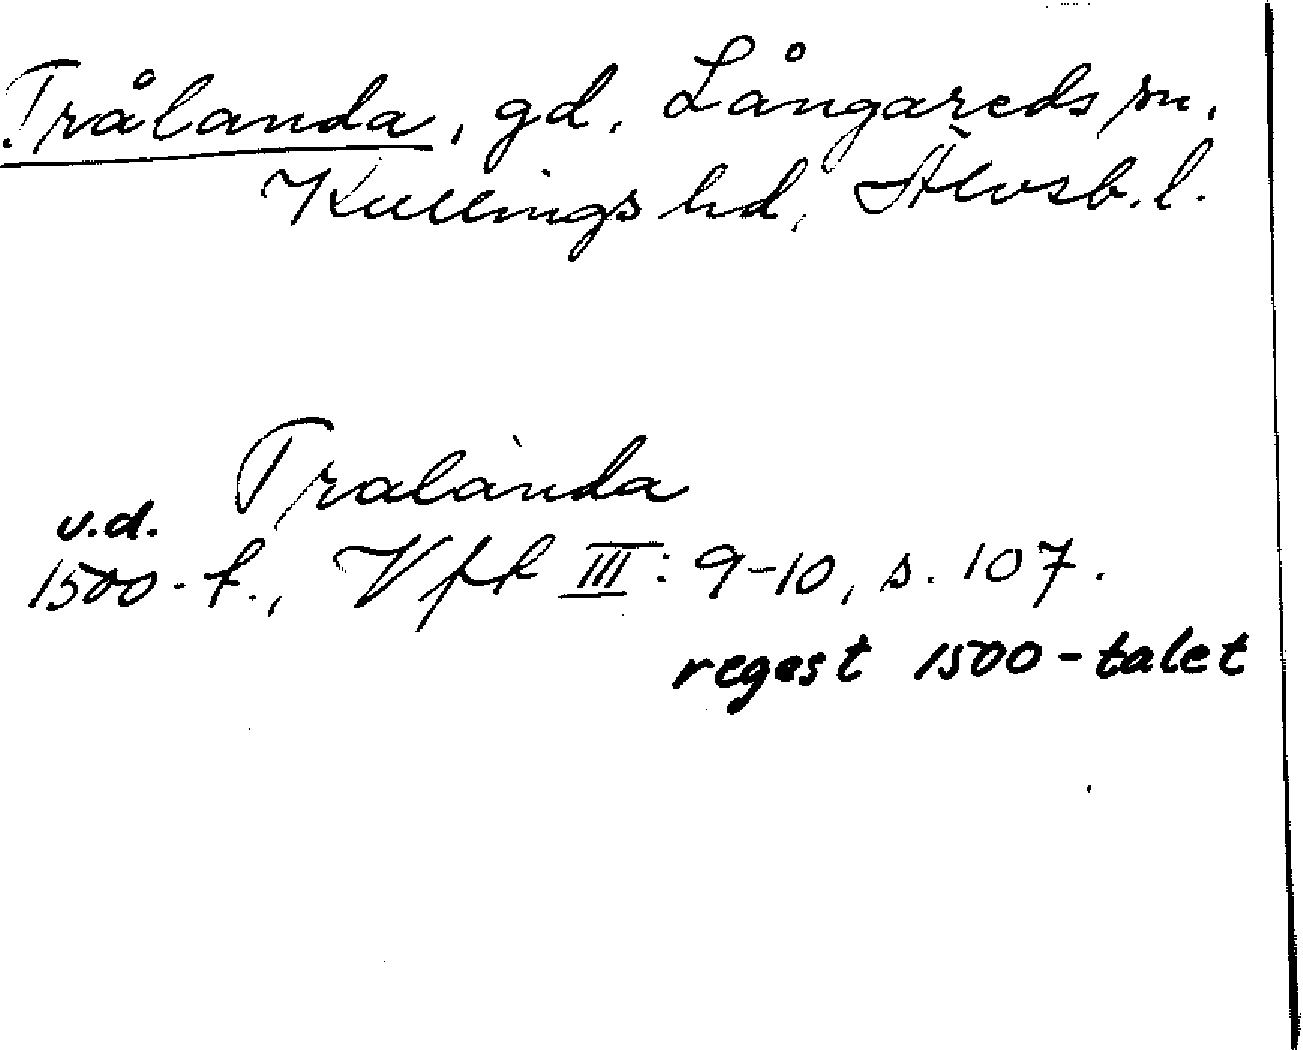 Trålanda, gd, Långareds sn,
Kullings hd, Älvsb. l.
Tralanda
u.d.
1500-t., Vfk III: 9-10, s. 107.
regest 1500-talet